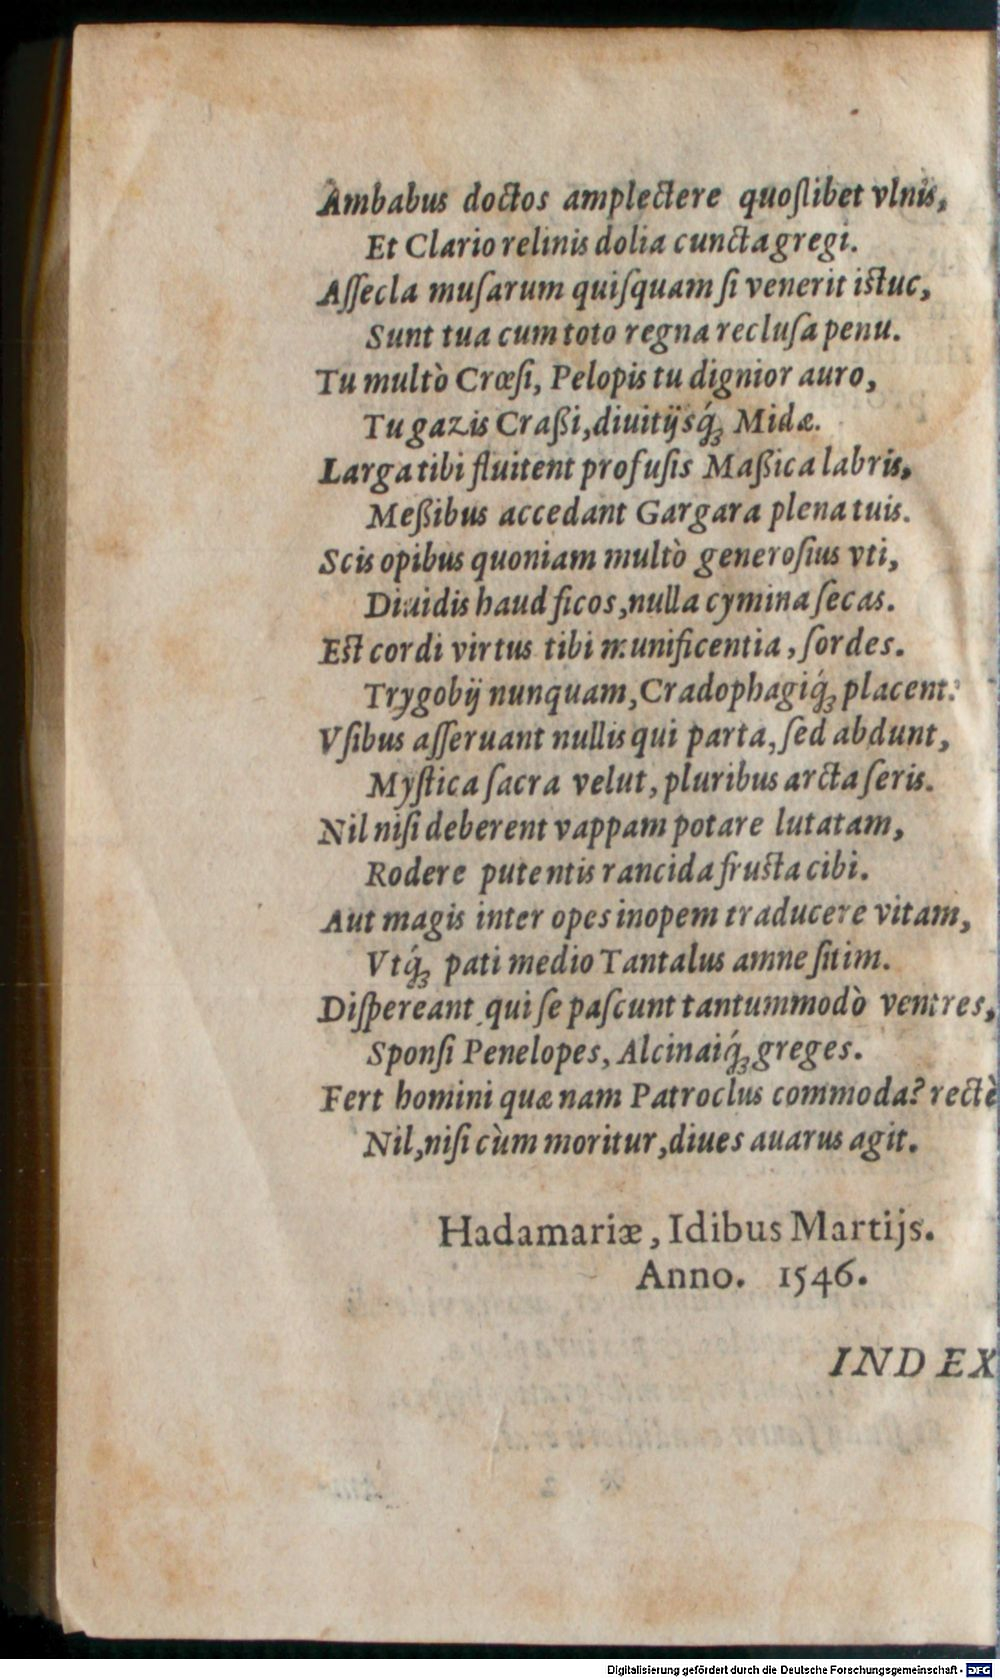 Ambabus doctos amplectere quoſlibet vlnis,
Et Clario relinis dolia cuncta gregi.
Aſſecla muſarum quiſquam ſi venerit iſtuc,
Sunt tua cum toto regna recluſa penu.
Tu multò Crœſi, Pelopis tu dignior auro,
Tu gazis Craßi, diuitijsq́ꝫ Midæ.
Larga tibi fluitent profuſis Maßica labris,
Meßibus accedant Gargara plena tuis.
Scis opibus quoniam multò generoſius vti,
Diuidis haud ficos, nulla cymina ſecas.
Eſt cordi virtus tibi munificentia, ſordes.
Trygobij nunquam, Cradophagiq́ꝫ placent:
Vſibus aſſeruant nullis qui parta, ſed abdunt,
Myſtica ſacra velut, pluribus arcta ſeris.
Nil niſi deberent vappam potare lutatam,
Rodere putentis rancida fruſta cibi.
Aut magis inter opes inopem traducere vitam,
Vtq́ꝫ pati medio Tantalus amne ſitim.
Diſpereant qui ſe paſcunt tantummodò ventres,
Sponſi Penelopes, Alcinaiq́ꝫ greges.
Fert homini quæ nam Patroclus commoda? rectè
Nil, niſi cùm moritur, diues auarus agit.
Hadamariæ, Idibus Martijs.
Anno. 1546.
INDEX
Digitalisierung gefördert durch die Deutsche Forschungsgemeinschaft - DFG